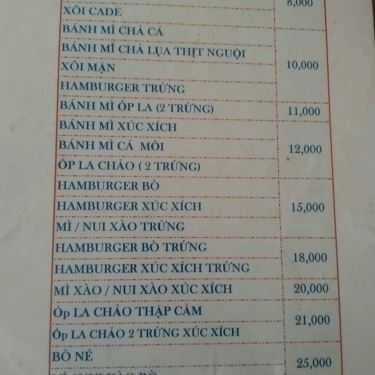 8,000
XÔI CADE
BÁNH MÌ CHẢ CÁ
BÁNH MÌ CHẢ LỤA THỊT NGUỘI
XÔI MẶN
10,000
HAMBURGER TRỨNG
BÁNH MÌ ỐP LA (2 TRỨNG)
11,000
BÁNH MÌ XÚC XÍCH
BÁNH MÌ CÁ MÒI
12,000
ỐP LA CHẢO ( 2 TRỨNG)
HAMBURGER BÒ
HAMBURGER XÚC XÍCH
15,000
MÌ / NUI XÀO TRỨNG
HAMBURGER BÒ TRỨNG
18,000
HAMBURGER XÚC XÍCH TRỨNG
MÌ XÀO / NUI XÀO XÚC XÍCH
20,000
Ốp LA CHẢO THẬP CẨM
21,000
Ốp LA CHẢO 2 TRỨNG XÚC XÍCH
BÒ NÉ
25,000